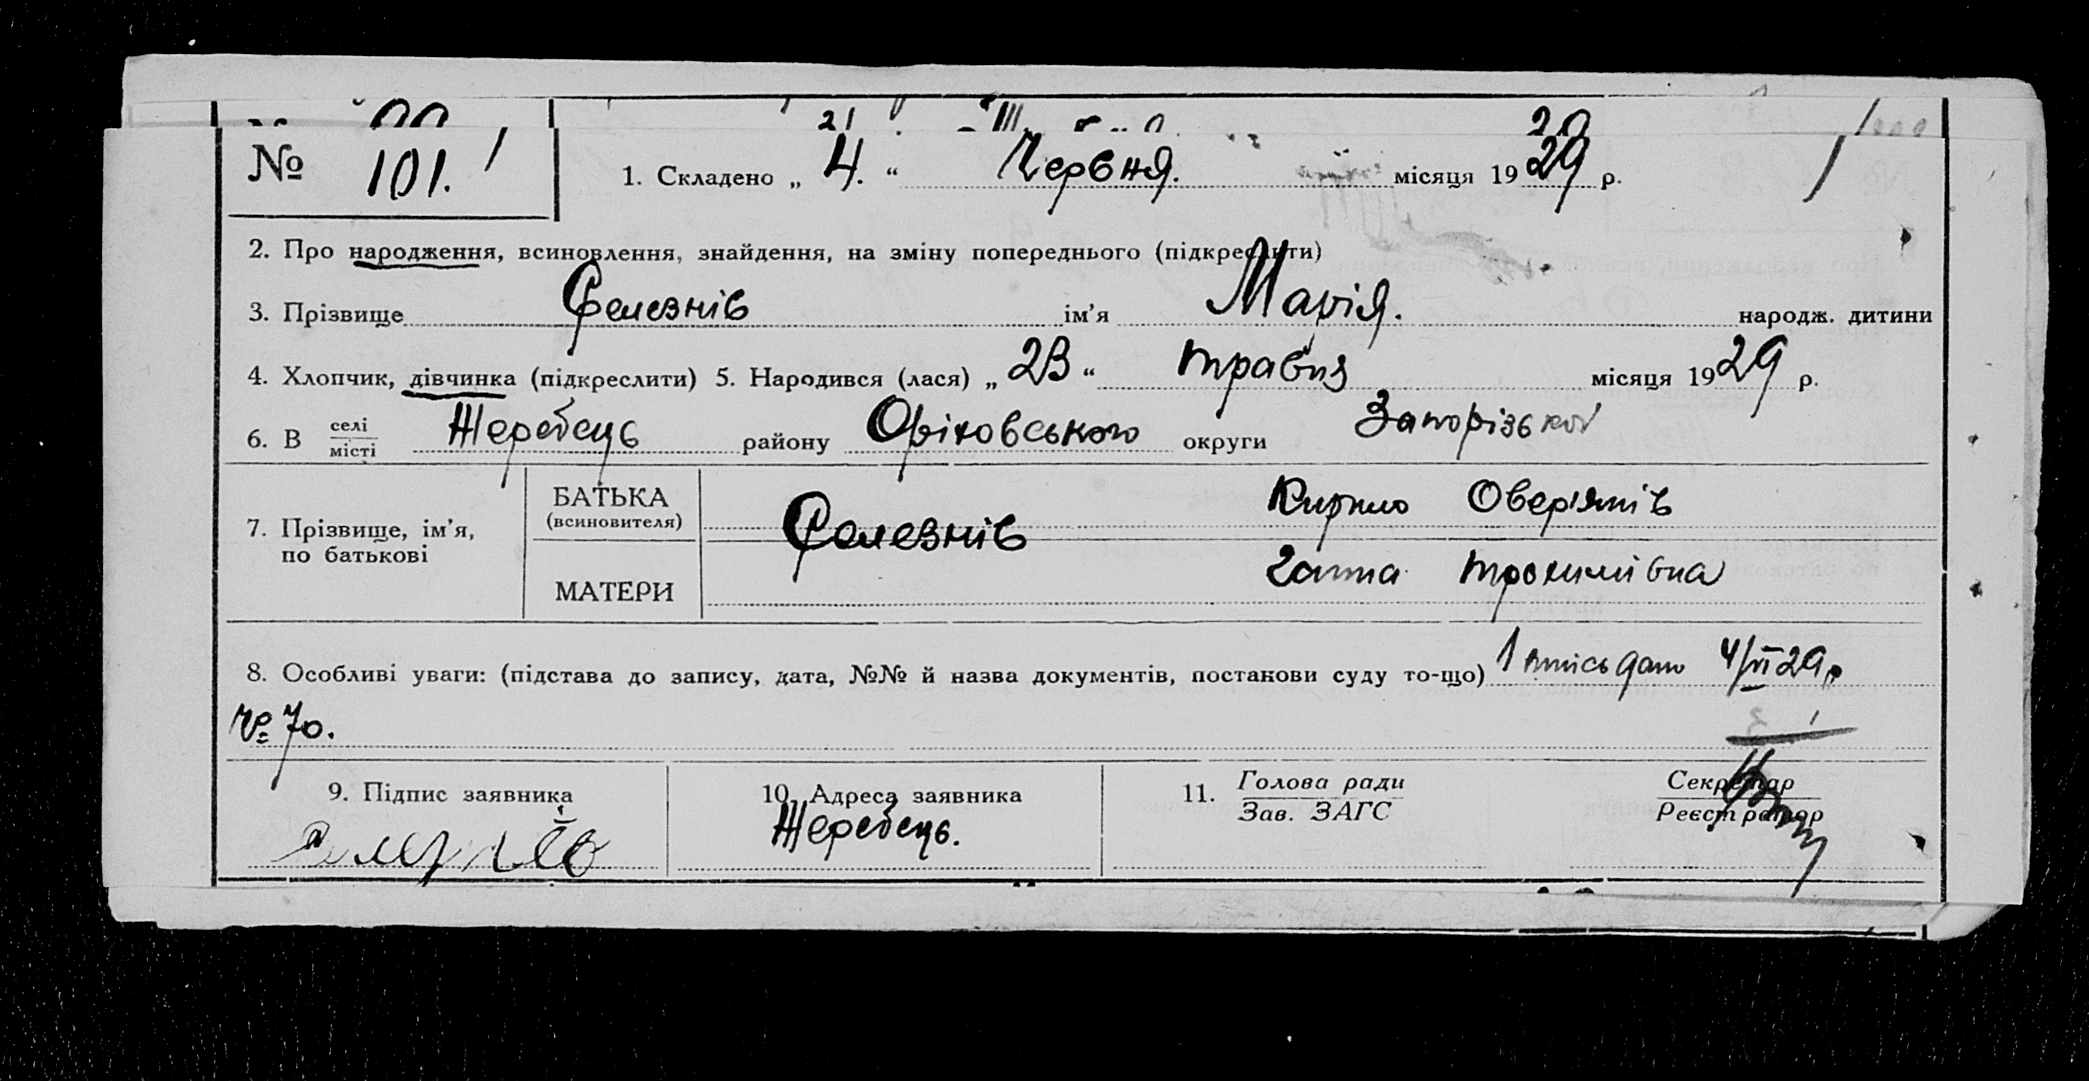 № 101. 1. Складено „ 4. “ Червня. місяця 1929 р.
2. Про народження, всиновлення, знайдення, на зміну попереднього (підкреслити)
3. Прізвище Селезнів ім’я Марія. народж. дитини
4. Хлопчик, дівчинка (підкреслити) 5. Народився (лася) „ 28 “ травня місяця 1929 р.
6. В селі місті Жеребець району Оріховського округи Запорізької
7. Прізвище, ім’я, по батькові
БАТЬКА (всиновителя) Селезнів Кирило Овер'янів
МАТЕРИ Ганна Трохимівна
8. Особливі уваги: (підстава до запису, дата, №№ й назва документів, постанови суду то-що) 1 дано 4/VI 29 р
№ 70.
9. Підпис заявника 10. Адреса заявника 11. Голова ради Секретар
Зав. ЗАГС Реєстратор
Жеребець.